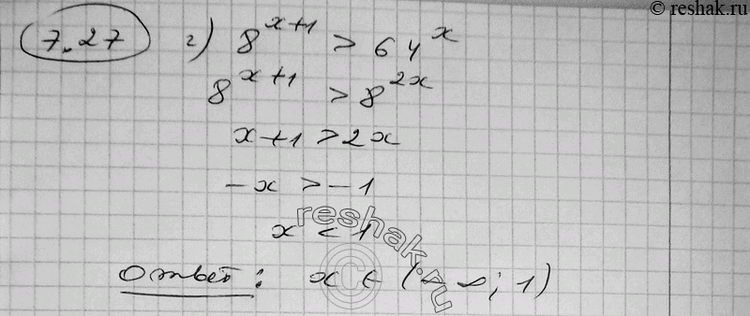 © reshak.ru
7.27 г) 8^{x+1} > 64^x
8^{x+1} > 8^{2x}
x+1 > 2x
-x > -1
x < 1
reshak.ru
©
Ответ: x ∈ (-∞; 1)